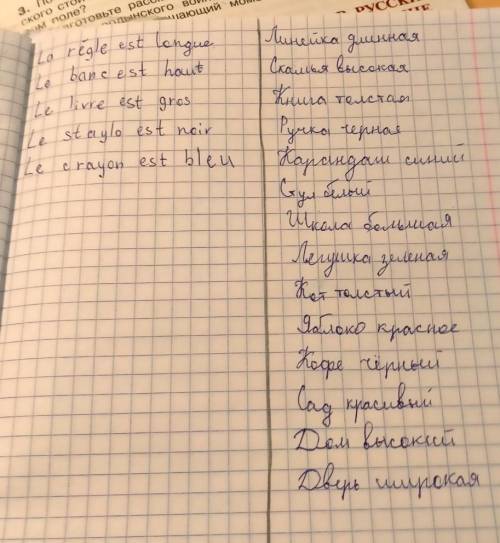 РУССКИ
La régle est longue
Le banc est haut
Le livre est gros
Le staylo est noir
Le crayon est bleu
Линейка длинная
Скамья высокая
Книга толстая
Ручка черная
Карандаш синий
Стул белый
Школа большая
Легушка зеленая
Кот толстый
Яблоко красное
Кофе чёрный
Сад красивый
Дом высокий
Дверь широкая